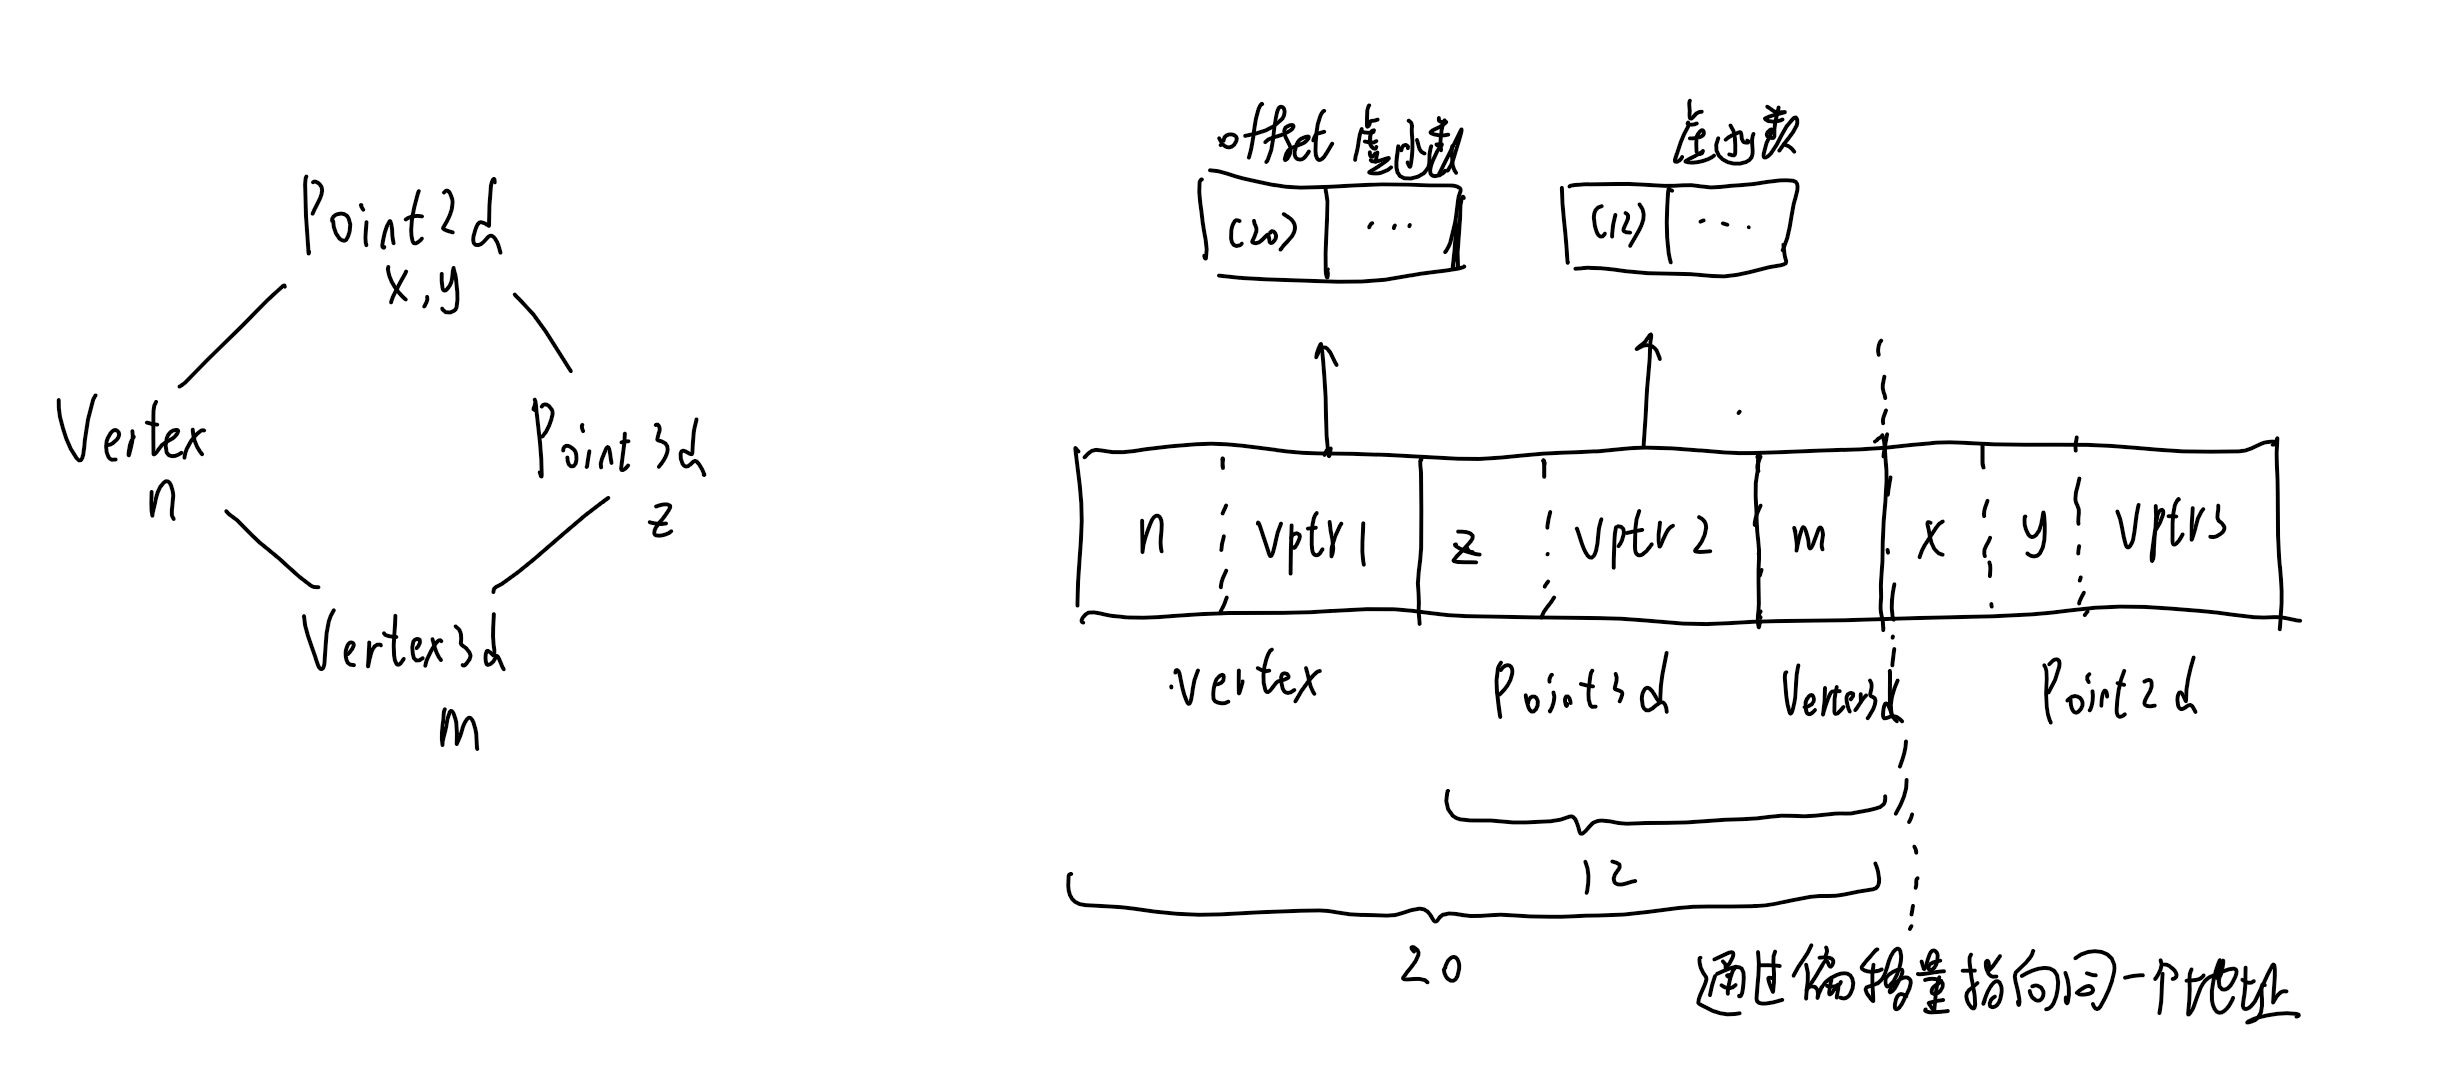 Point2d
x,y
Vertex
n
Point3d
z
Vertex3d
m
offset 虚函数
虚函数
(20) ...
(12) ...
n vptr1 z vptr2 m x y vptr3
vertex Point3d Vertex3d Point2d
12
20
通过偏移量指向同一个地址